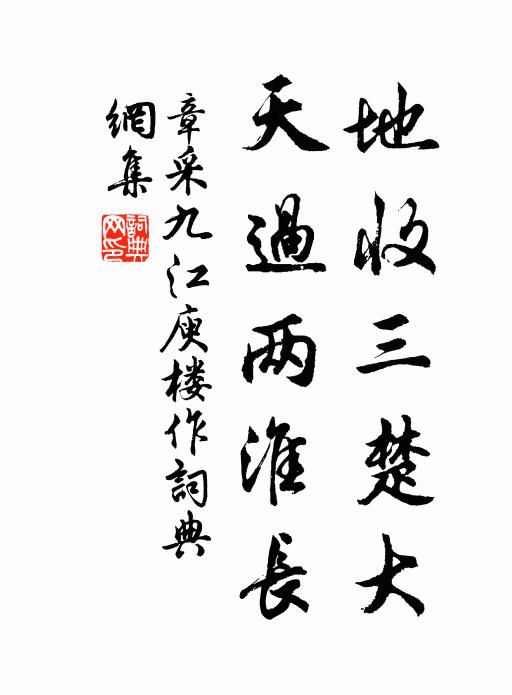 地收三楚大
天過兩淮長
章采九江庾楼作詞典
網集
詞典
网印